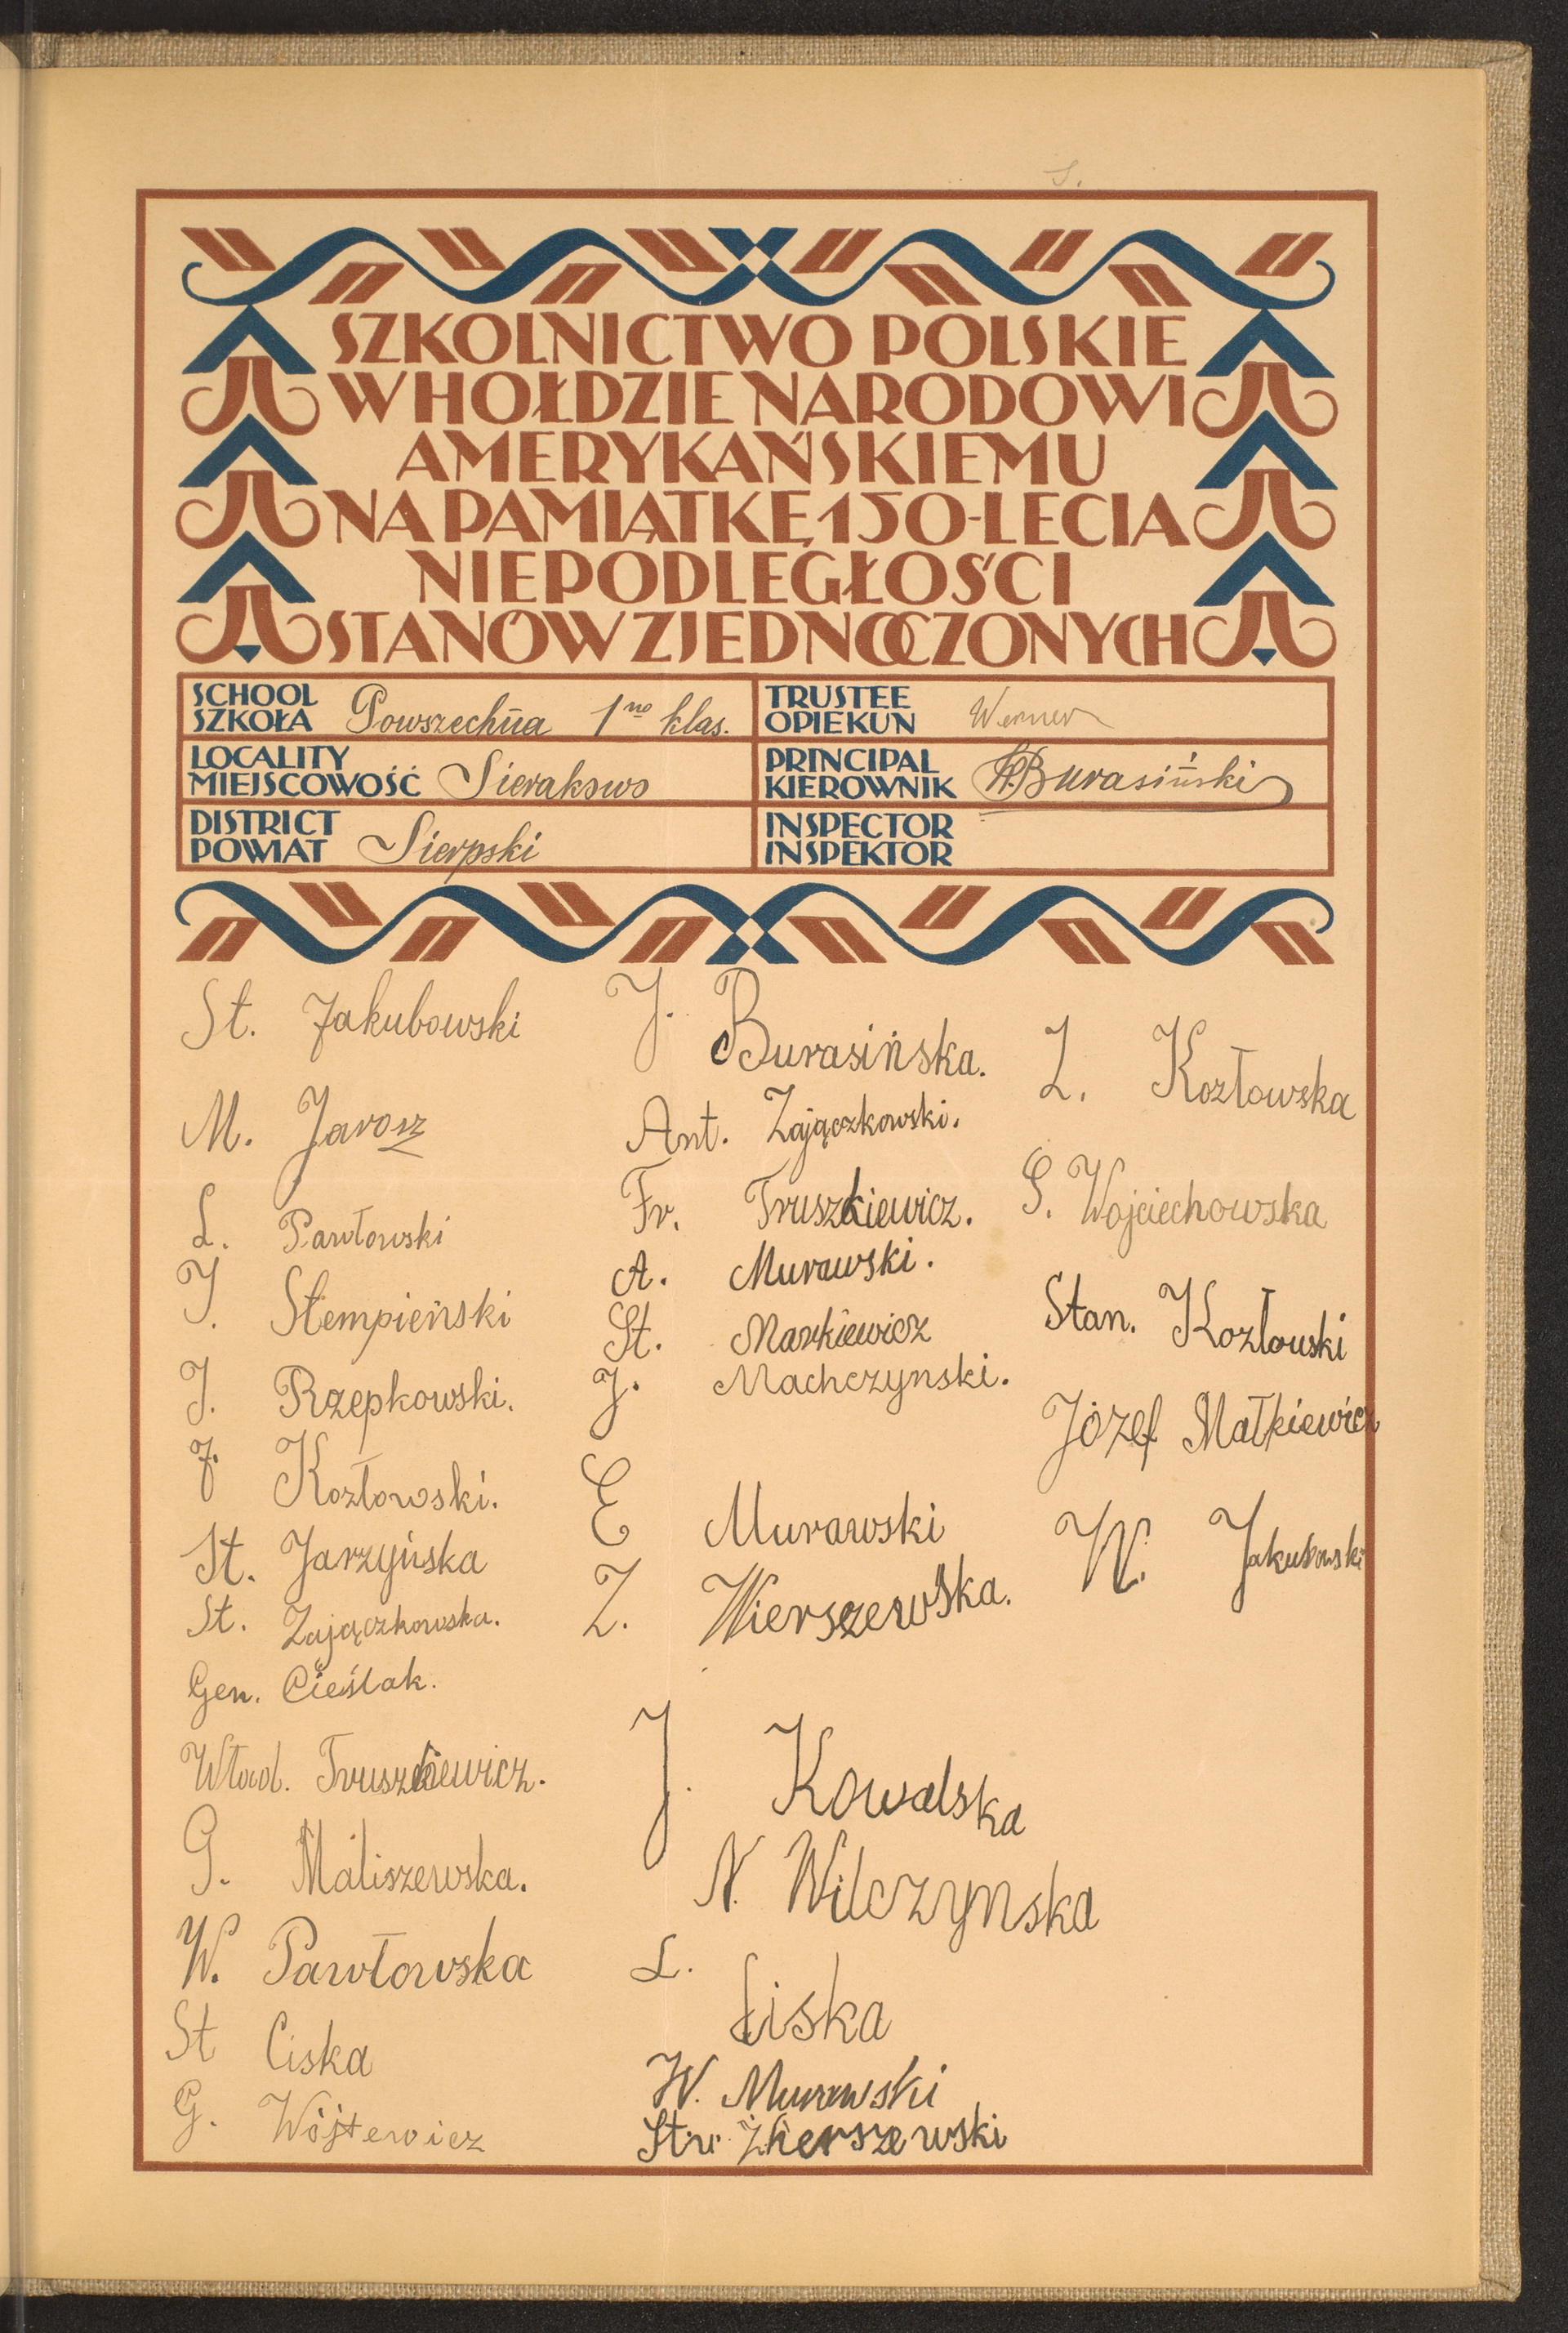 S.
SZKOLNICTWO POLSKIE
W HOŁDZIE NARODOWI
AMERYKAŃSKIEMU
NA PAMIĄTKĘ 150-LECIA
NIEPODLEGŁOŚCI
STANÓW ZJEDNOCZONYCH
SCHOOL
SZKOŁA Powszechna 1no klas.
TRUSTEE
OPIEKUN Werner
LOCALITY
MIEJSCOWOŚĆ Sierakowo
PRINCIPAL
KIEROWNIK Burasiński
DISTRICT
POWIAT Sierpski
INSPECTOR
INSPEKTOR
St. Jakubowski
M. Jarosz
L. Pawłowski
J. Stempieński
J. Rzepkowski.
J. Kozłowski.
St. Jarzyńska
St. Zajączkowska.
Gen. Cieślak.
Wład. Truszkiewicz.
G. Maliszewska.
W. Pawłowska
St Ciska
G. Wójtewicz
J. Burasińska.
Ant. Zajączkowski.
Fr. Truszkiewicz.
A. Murawski.
St. Markiewicz
J. Machczynski.
E Murawski
Z. Wierszewska.
J. Kowalska
N. Wilczynska
L. Liska
W. Murawski
Z. Kozłowska
S. Wojciechowska
Stan. Kozłowski
Józef Małkiewicz
W. Jakubowski